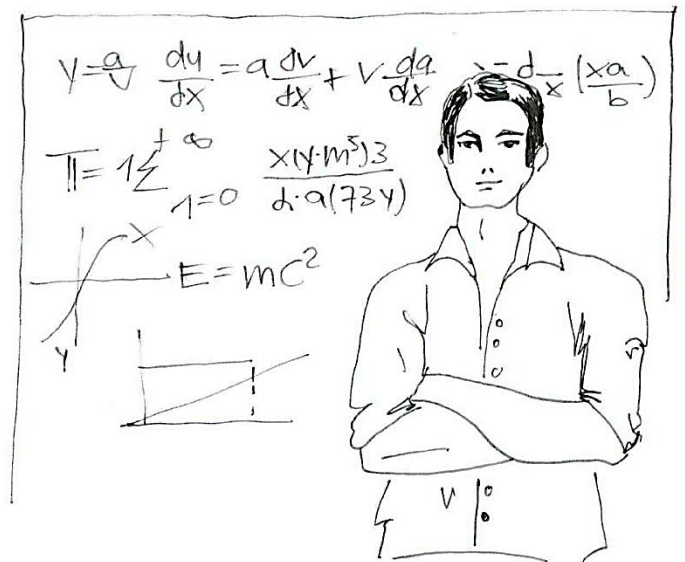 y=a/v du/dx = a dv/dx + v da/dx = d/x (xa/b)
π=1Σ +∞ 1=0 x(y·m⁵)3 / d·a(73y)
X
E=mc²
Y